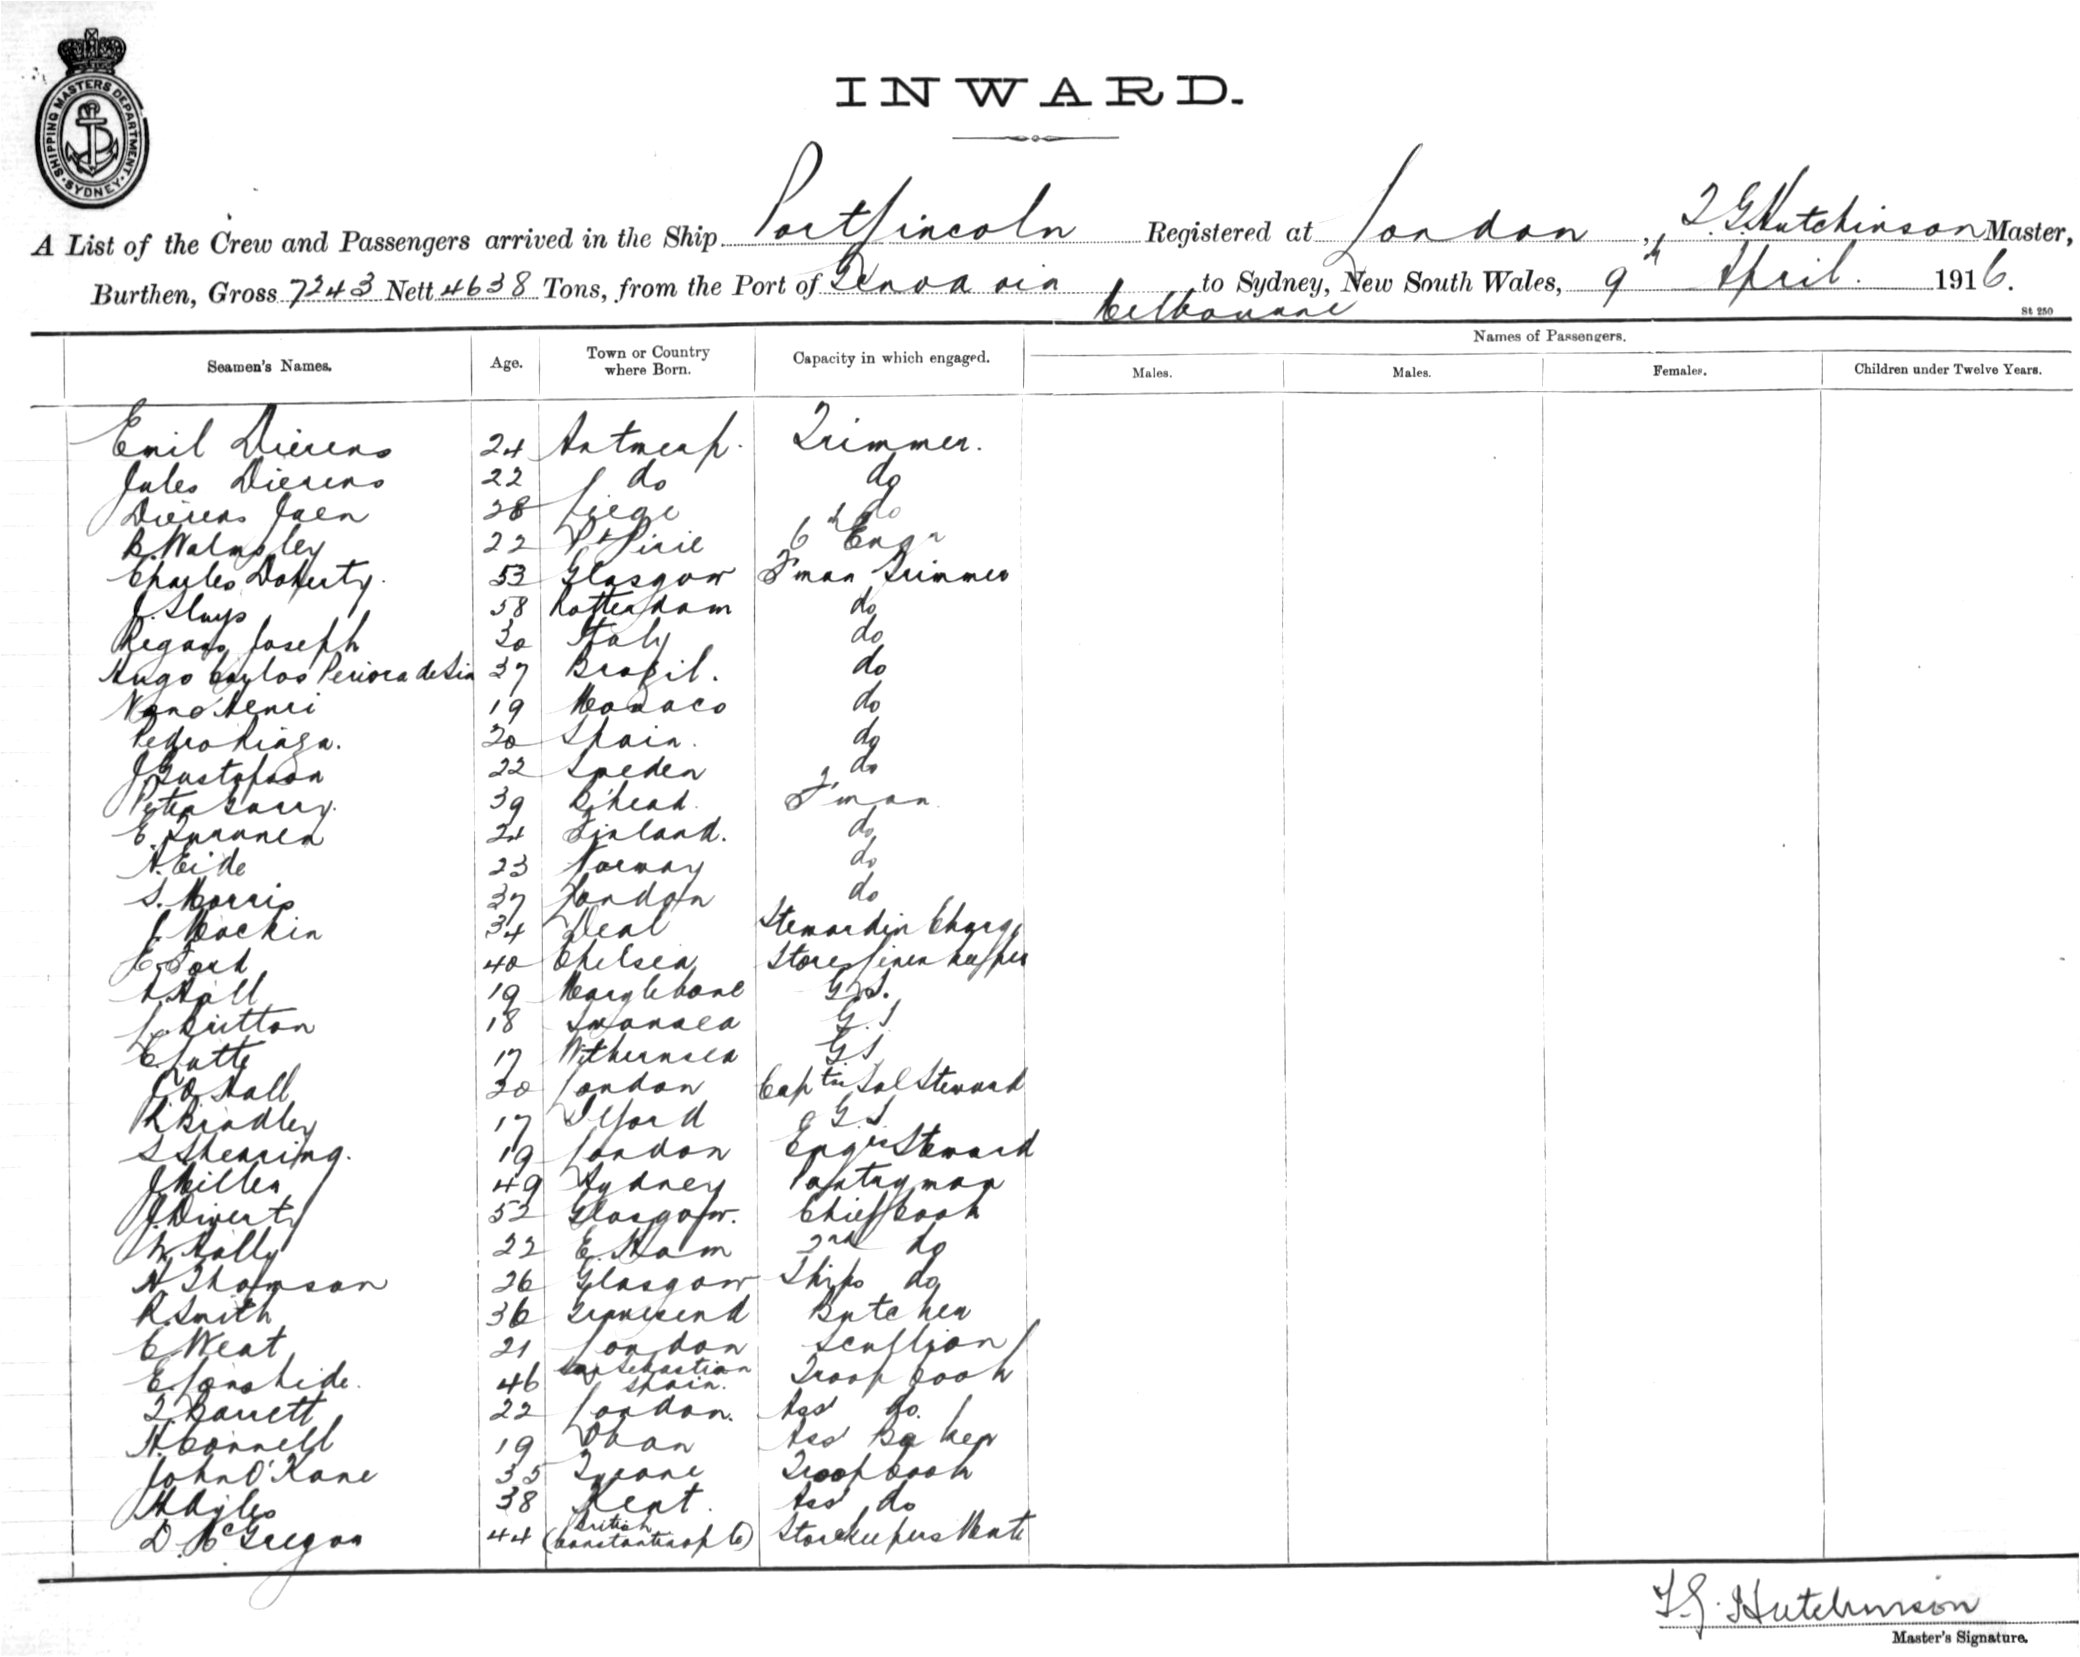 SHIPPING MASTERS DEPARTMENT. SYDNEY.
INWARD.
A List of the Crew and Passengers arrived in the Ship Port Lincoln Registered at London, T. G. Hutchinson Master,
Burthen, Gross 7243 Nett 4638 Tons, from the Port of Genoa via Melbourne to Sydney, New South Wales, 9th April. 1916.
St 250
Seamen's Names. Age. Town or Country where Born. Capacity in which engaged. Names of Passengers.
Males. Males. Females. Children under Twelve Years.
Emil Dierens 24 Antwerp. Trimmer.
Jules Dierens 22 do do
Dierens Jaen 28 Liege do
R. Walmsley 22 Pt Pirie 6th Engr
Charles Doherty. 53 Glasgow F'man Trimmer
J. Sluys 58 Rotterdam do
Joseph 30 Italy do
Hugo Carlos 37 Brazil. do
Henri 19 Monaco do
Pedro 20 Spain. do
J Gustafson 22 Sweden do
Peter Garry. 39 B'head. F'man
E. 24 Finland. do
A. Eide 23 Norway do
S. Morris 37 London do
J. Mackin 34 Deal Steward in Charge
E. Ford 40 Chelsea Store Linen keeper
A. Hall 19 Marylebone G.S.
J. Britton 18 Swansea G.S
E. Lutte 17 Withernsea G.S
J. O. Hall 20 London Captns Sal Steward
R. Bradley 17 Ilford G.S.
S Shearing. 19 London Engrs Steward
J Miller 49 Sydney Pantryman
J. Diverty 52 Glasgow. Chief Cook
W. Kelly 22 E. Ham 2nd do
H Thomson 26 Glasgow Ships do
R. Smith 36 Gravesend Butcher
C West 21 London Scullion
E. 46 San Sebastian Spain. Troop Cook
T. Barrett 22 London. Ass' do.
H. Connell 19 Oban Ass' Baker
John O'Kane 35 Tyrone Troop Cook
H Ayles 38 Kent. Ass' do
D. McGregor 44 British (Constantinople) Storekeepers Mate
T. G. Hutchinson
Master's Signature.